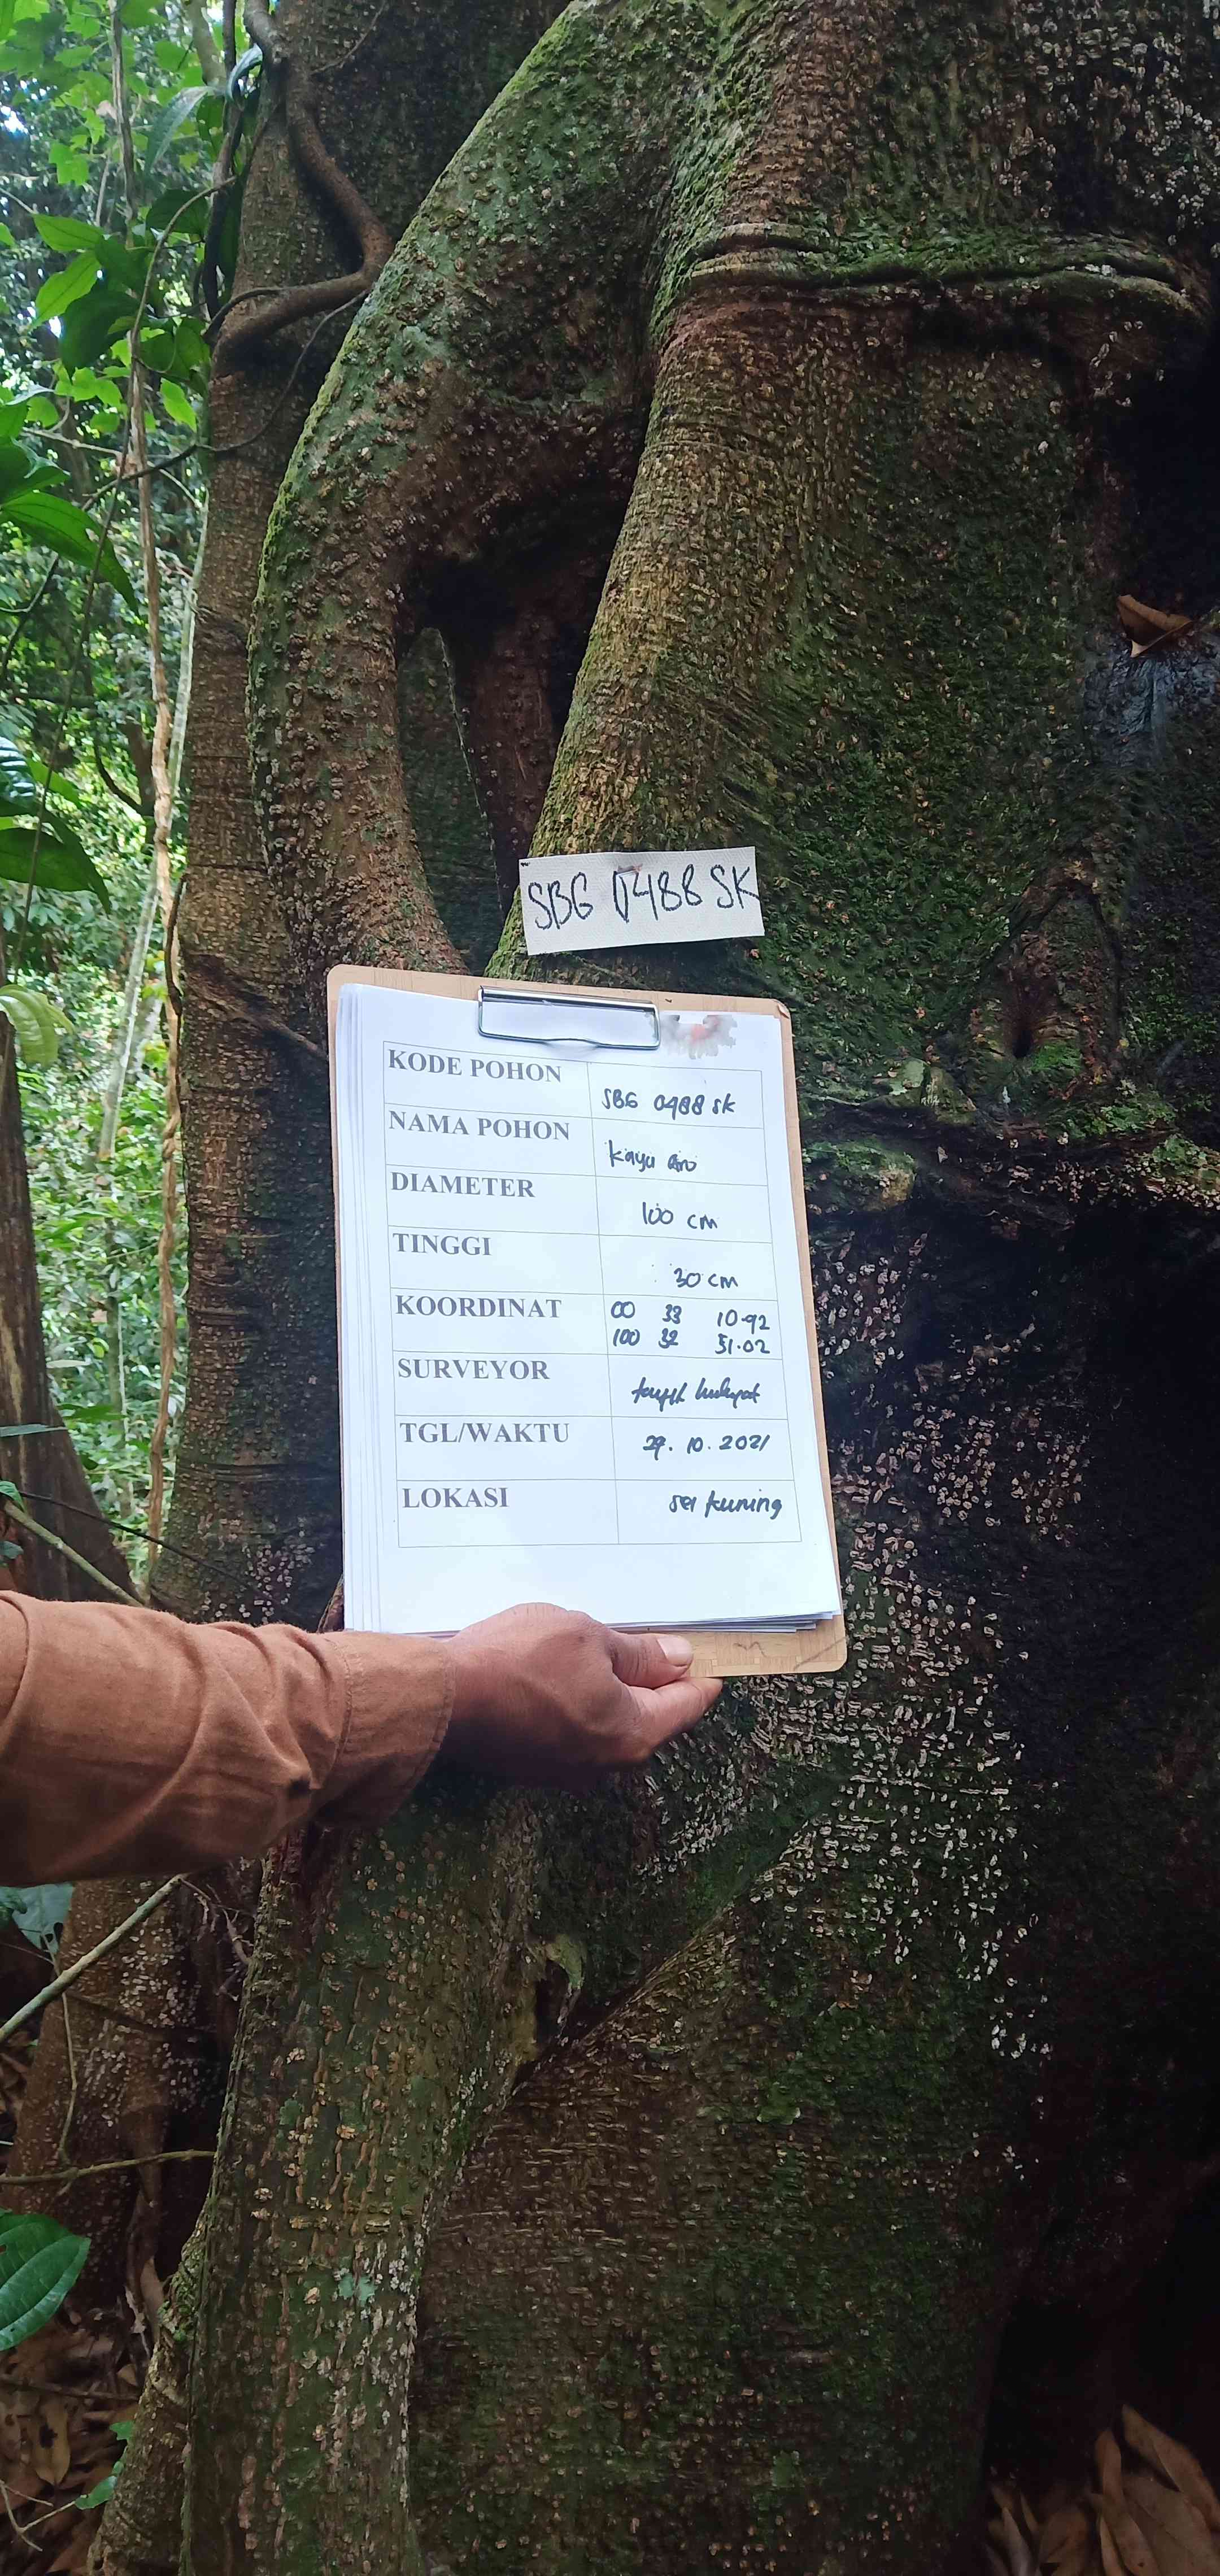 SBG 0488 SK
KODE POHON SBG 0488 SK
NAMA POHON kayu aro
DIAMETER 100 cm
TINGGI 30 cm
KOORDINAT 00 33 10.92
100 32 51.02
SURVEYOR
TGL/WAKTU 29.10.2021
LOKASI sei kuning